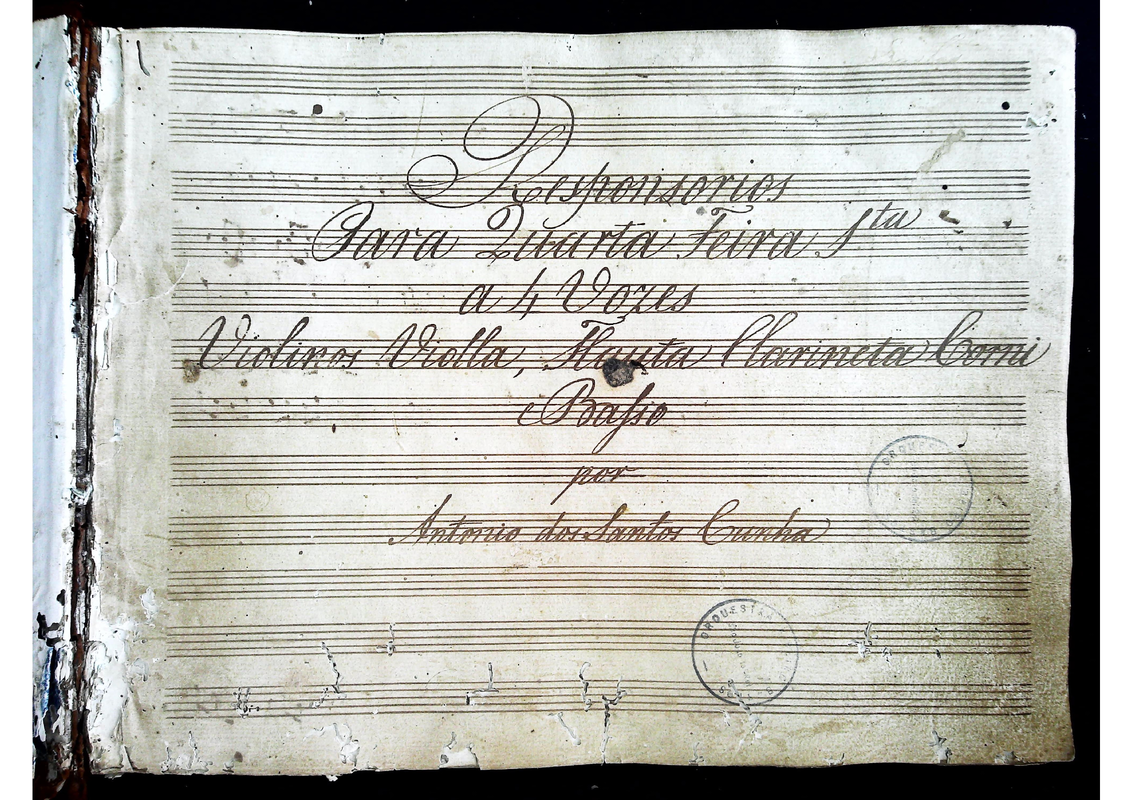 Responsorios
Para Quarta Feira Sta
a 4 Vozes
Violinos Violla, Flauta Clarineta Corni
e Basso
por
Antonio dos Santos Cunha
ORQUESTRA